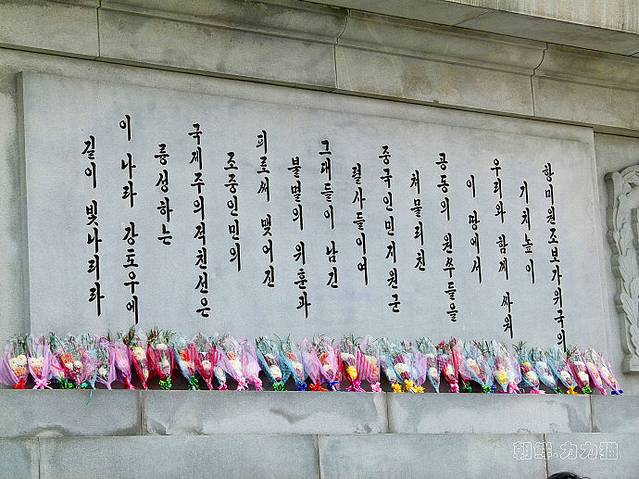 항미원조보가위국의
기치높이
우리와 함께 싸워
이 땅에서
공동의 원쑤들을
쳐물리친
중국인민지원군
렬사들이여
그대들이 남긴
불멸의 위훈과
피로써 맺어진
조중인민의
국제주의적친선은
륭성하는
이 나라 강토우에
길이 빛나리라
朝鲜.力力猫